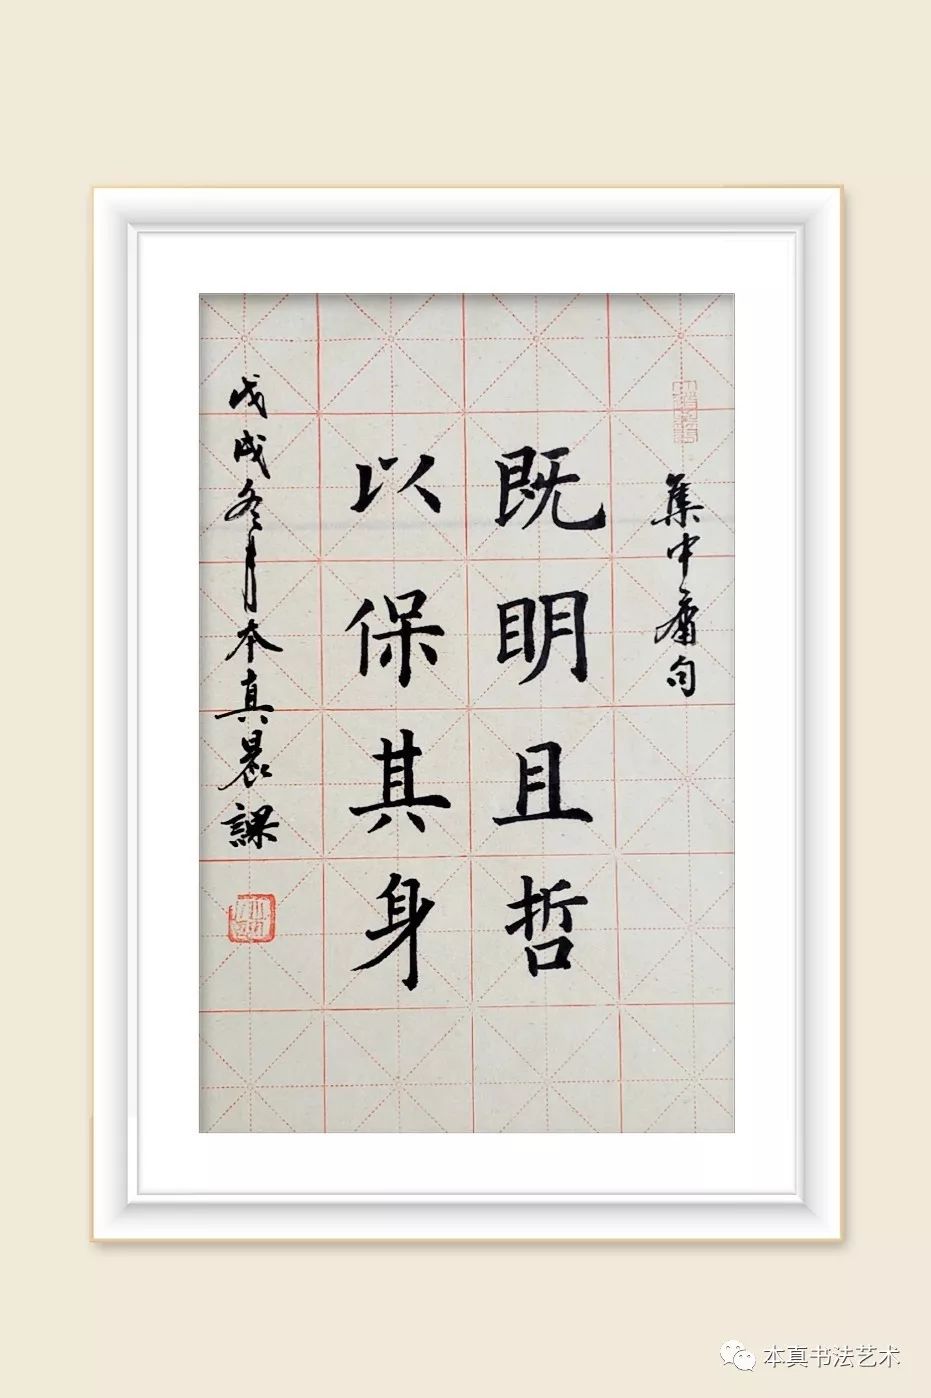 集中庸句
既明且哲
以保其身
戊戌冬月本真晨課
本真书法艺术